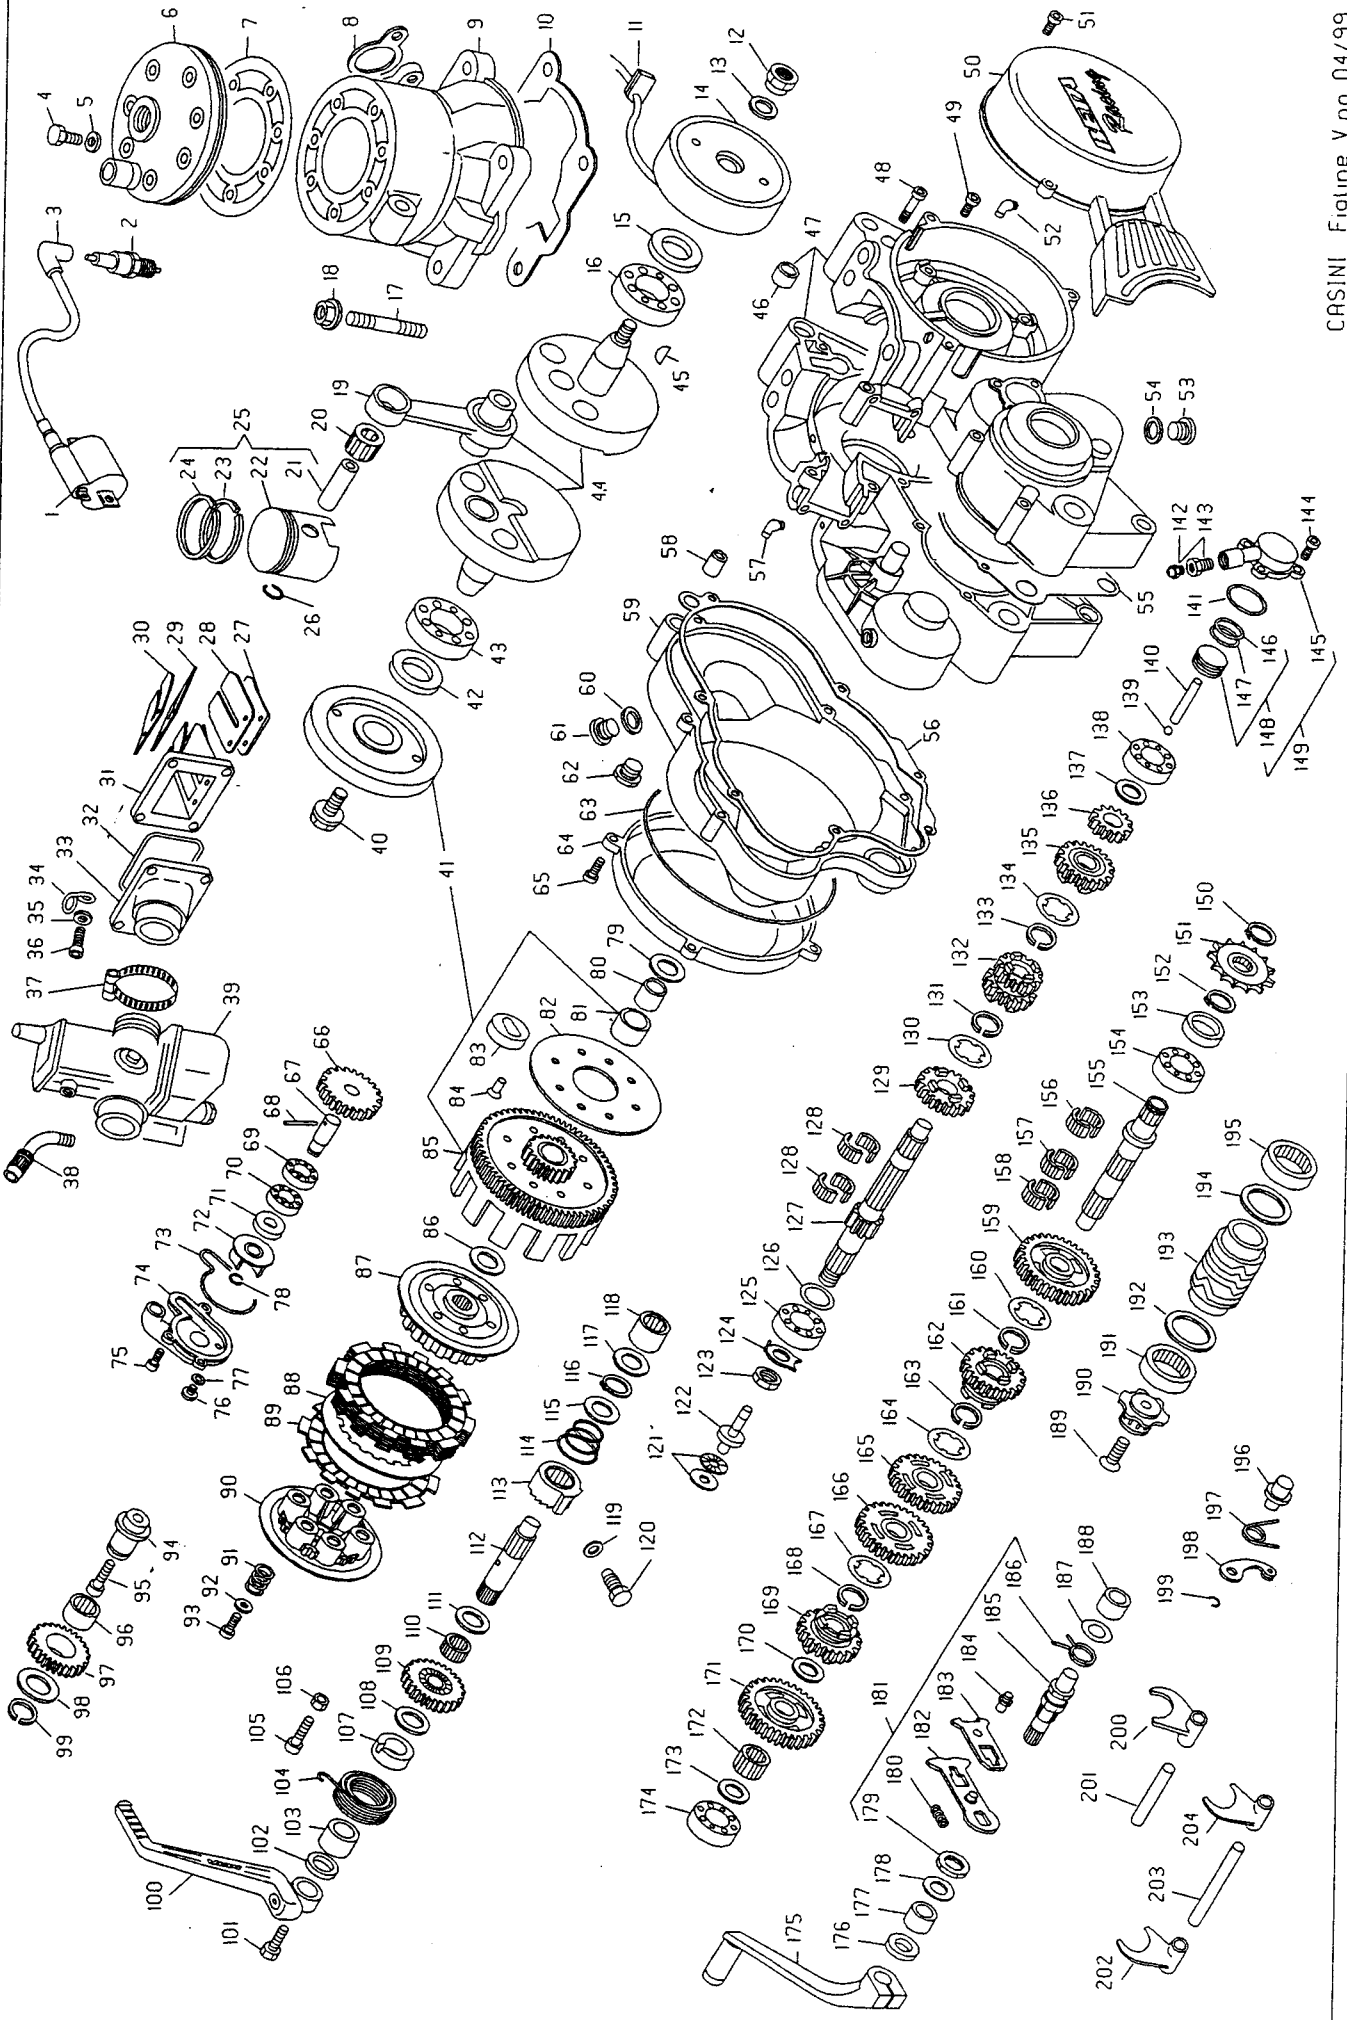 1
2
3
4
5
6
7
8
9
10
11
12
13
14
15
16
17
18
19
20
21
22
23
24
25
26
27
28
29
30
31
32
33
34
35
36
37
38
39
40
41
42
43
44
45
46
47
48
49
50
51
52
53
54
55
56
57
58
59
60
61
62
63
64
65
66
67
68
69
70
71
72
73
74
75
76
77
78
79
80
81
82
83
84
85
86
87
88
89
90
91
92
93
94
95
96
97
98
99
100
101
102
103
104
105
106
107
108
109
110
111
112
113
114
115
116
117
118
119
120
121
122
123
124
125
126
127
128
128
129
130
131
132
133
134
135
136
137
138
139
140
141
142
143
144
145
146
147
148
149
150
151
152
153
154
155
156
157
158
159
160
161
162
163
164
165
166
167
168
169
170
171
172
173
174
175
176
177
178
179
180
181
182
183
184
185
186
187
188
189
190
191
192
193
194
195
196
197
198
199
200
201
202
203
204
Racing
CASINI
04/99